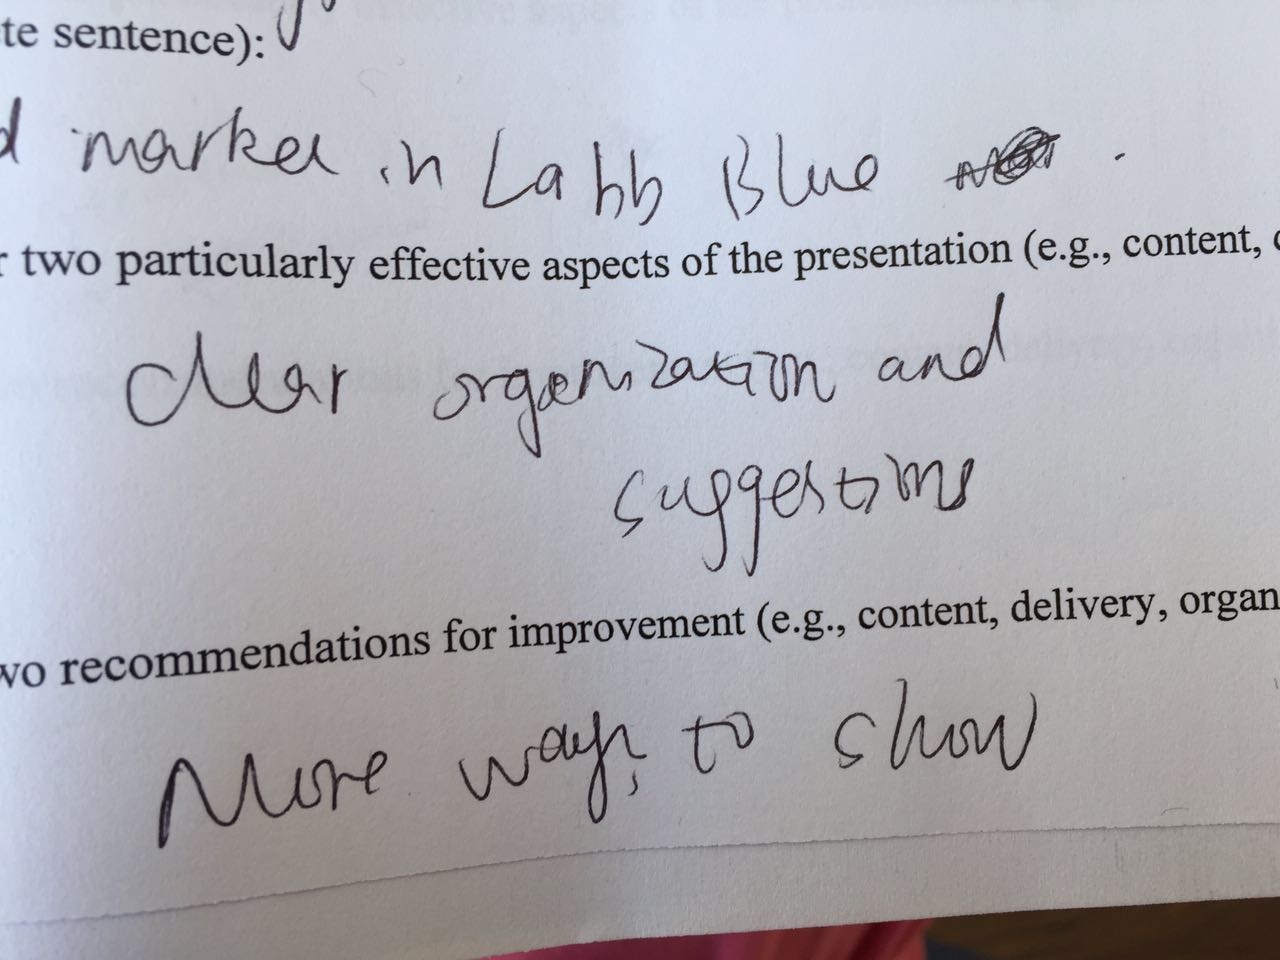 te sentence):
d marker in Labb Blue .
r two particularly effective aspects of the presentation (e.g., content,
Clear organization and
suggestions
wo recommendations for improvement (e.g., content, delivery, organ
More ways to show